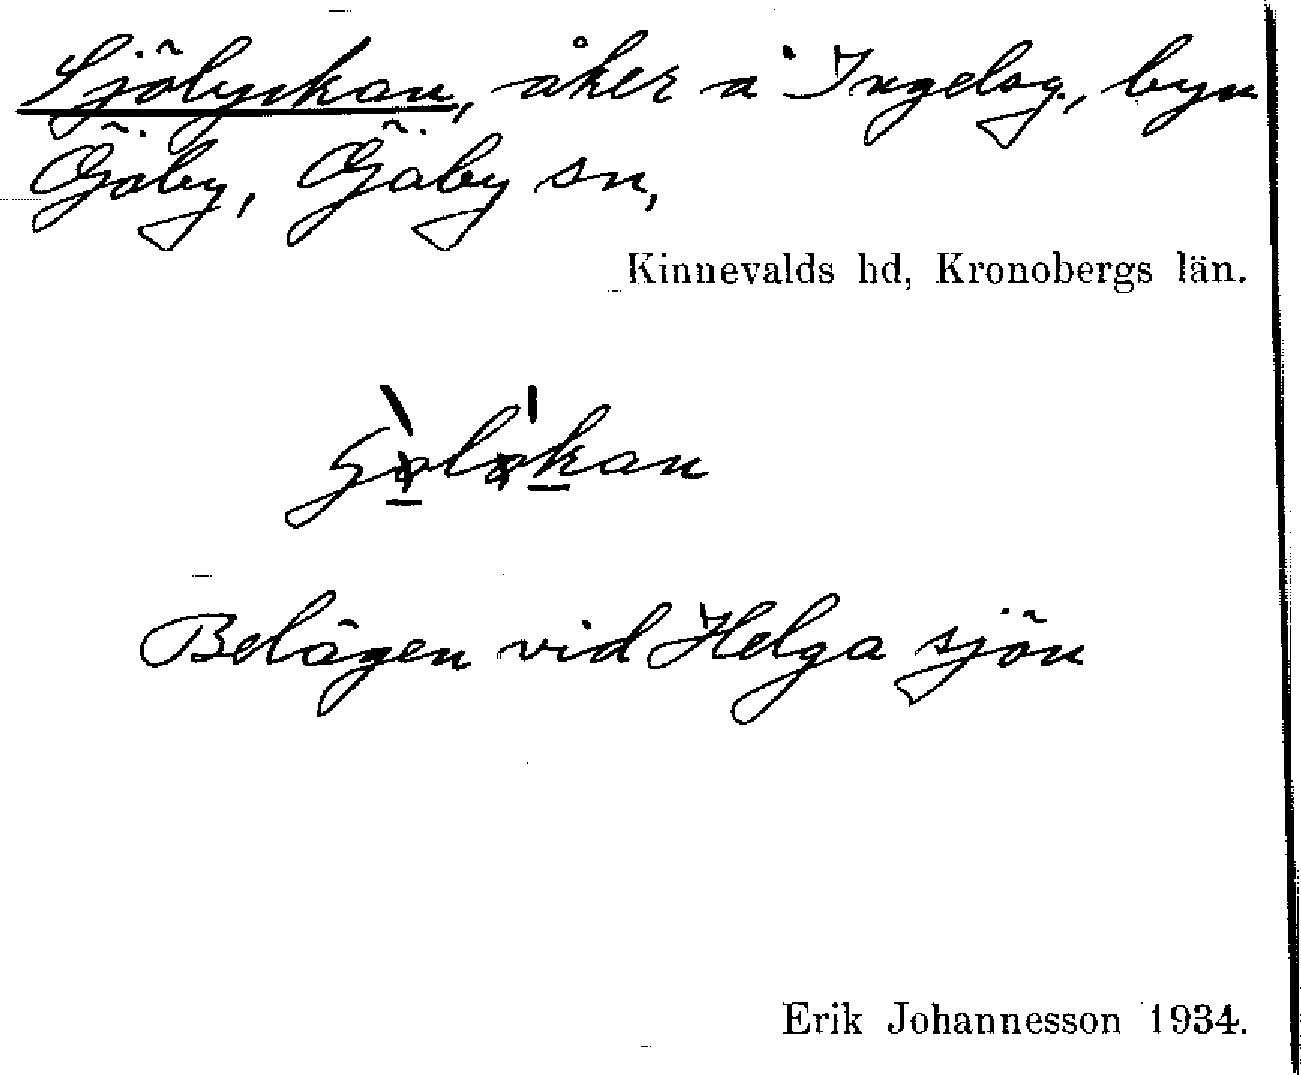 Sjölyckan, åker å Ingelsg., byn
Göby, Öjaby sn,
Kinnevalds hd, Kronobergs län.
Belägen vid Helga sjön
Erik Johannesson 1934.